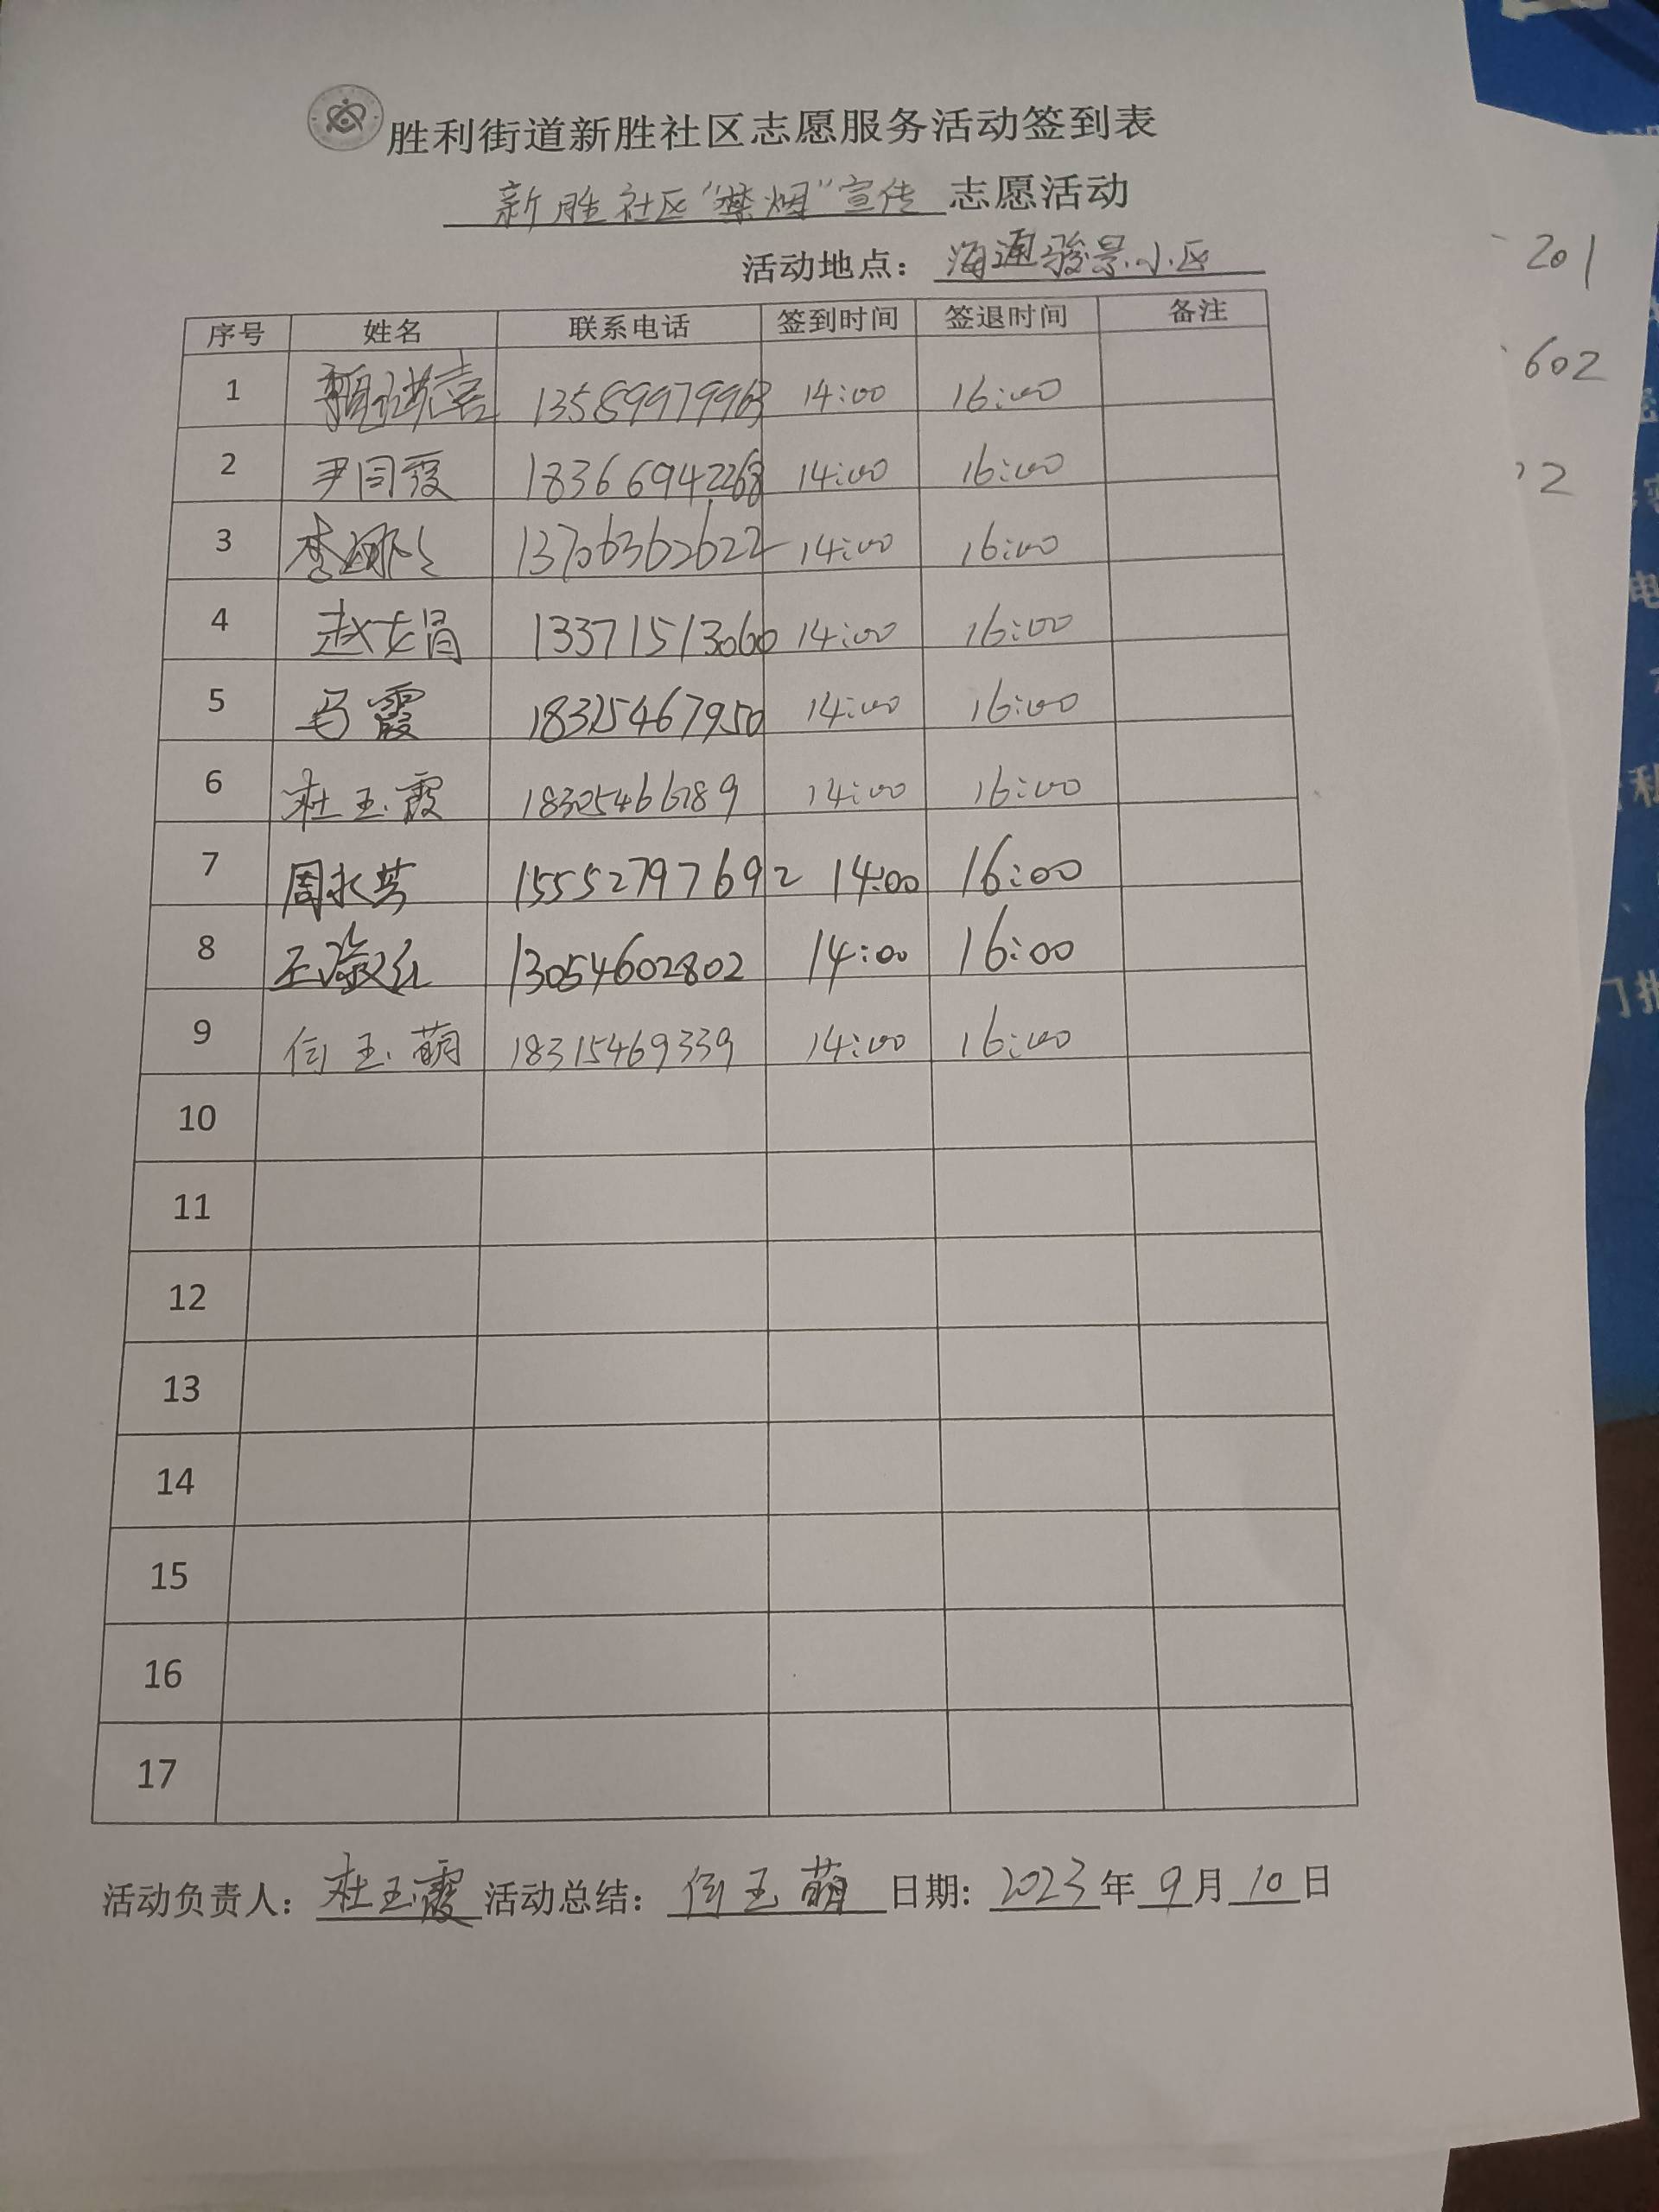 胜利街道新胜社区志愿服务活动签到表
新胜社区“禁烟”宣传 志愿活动
活动地点： 海通骏景小区
序号 姓名 联系电话 签到时间 签退时间 备注
1 13589979963 14:00 16:00
2 尹同霞 18366942268 14:00 16:00
3 李 13706362622 14:00 16:00
4 赵 13371513060 14:00 16:00
5 马霞 18325467950 14:00 16:00
6 杜玉霞 14:00 16:00
7 周永芳 15552797692 14:00 16:00
8 王淑红 13054602802 14:00 16:00
9 闫玉萌 18315469339 14:00 16:00
10
11
12
13
14
15
16
17
活动负责人： 杜玉霞 活动总结： 闫玉萌 日期: 2023 年 9 月 10 日
201
602
2